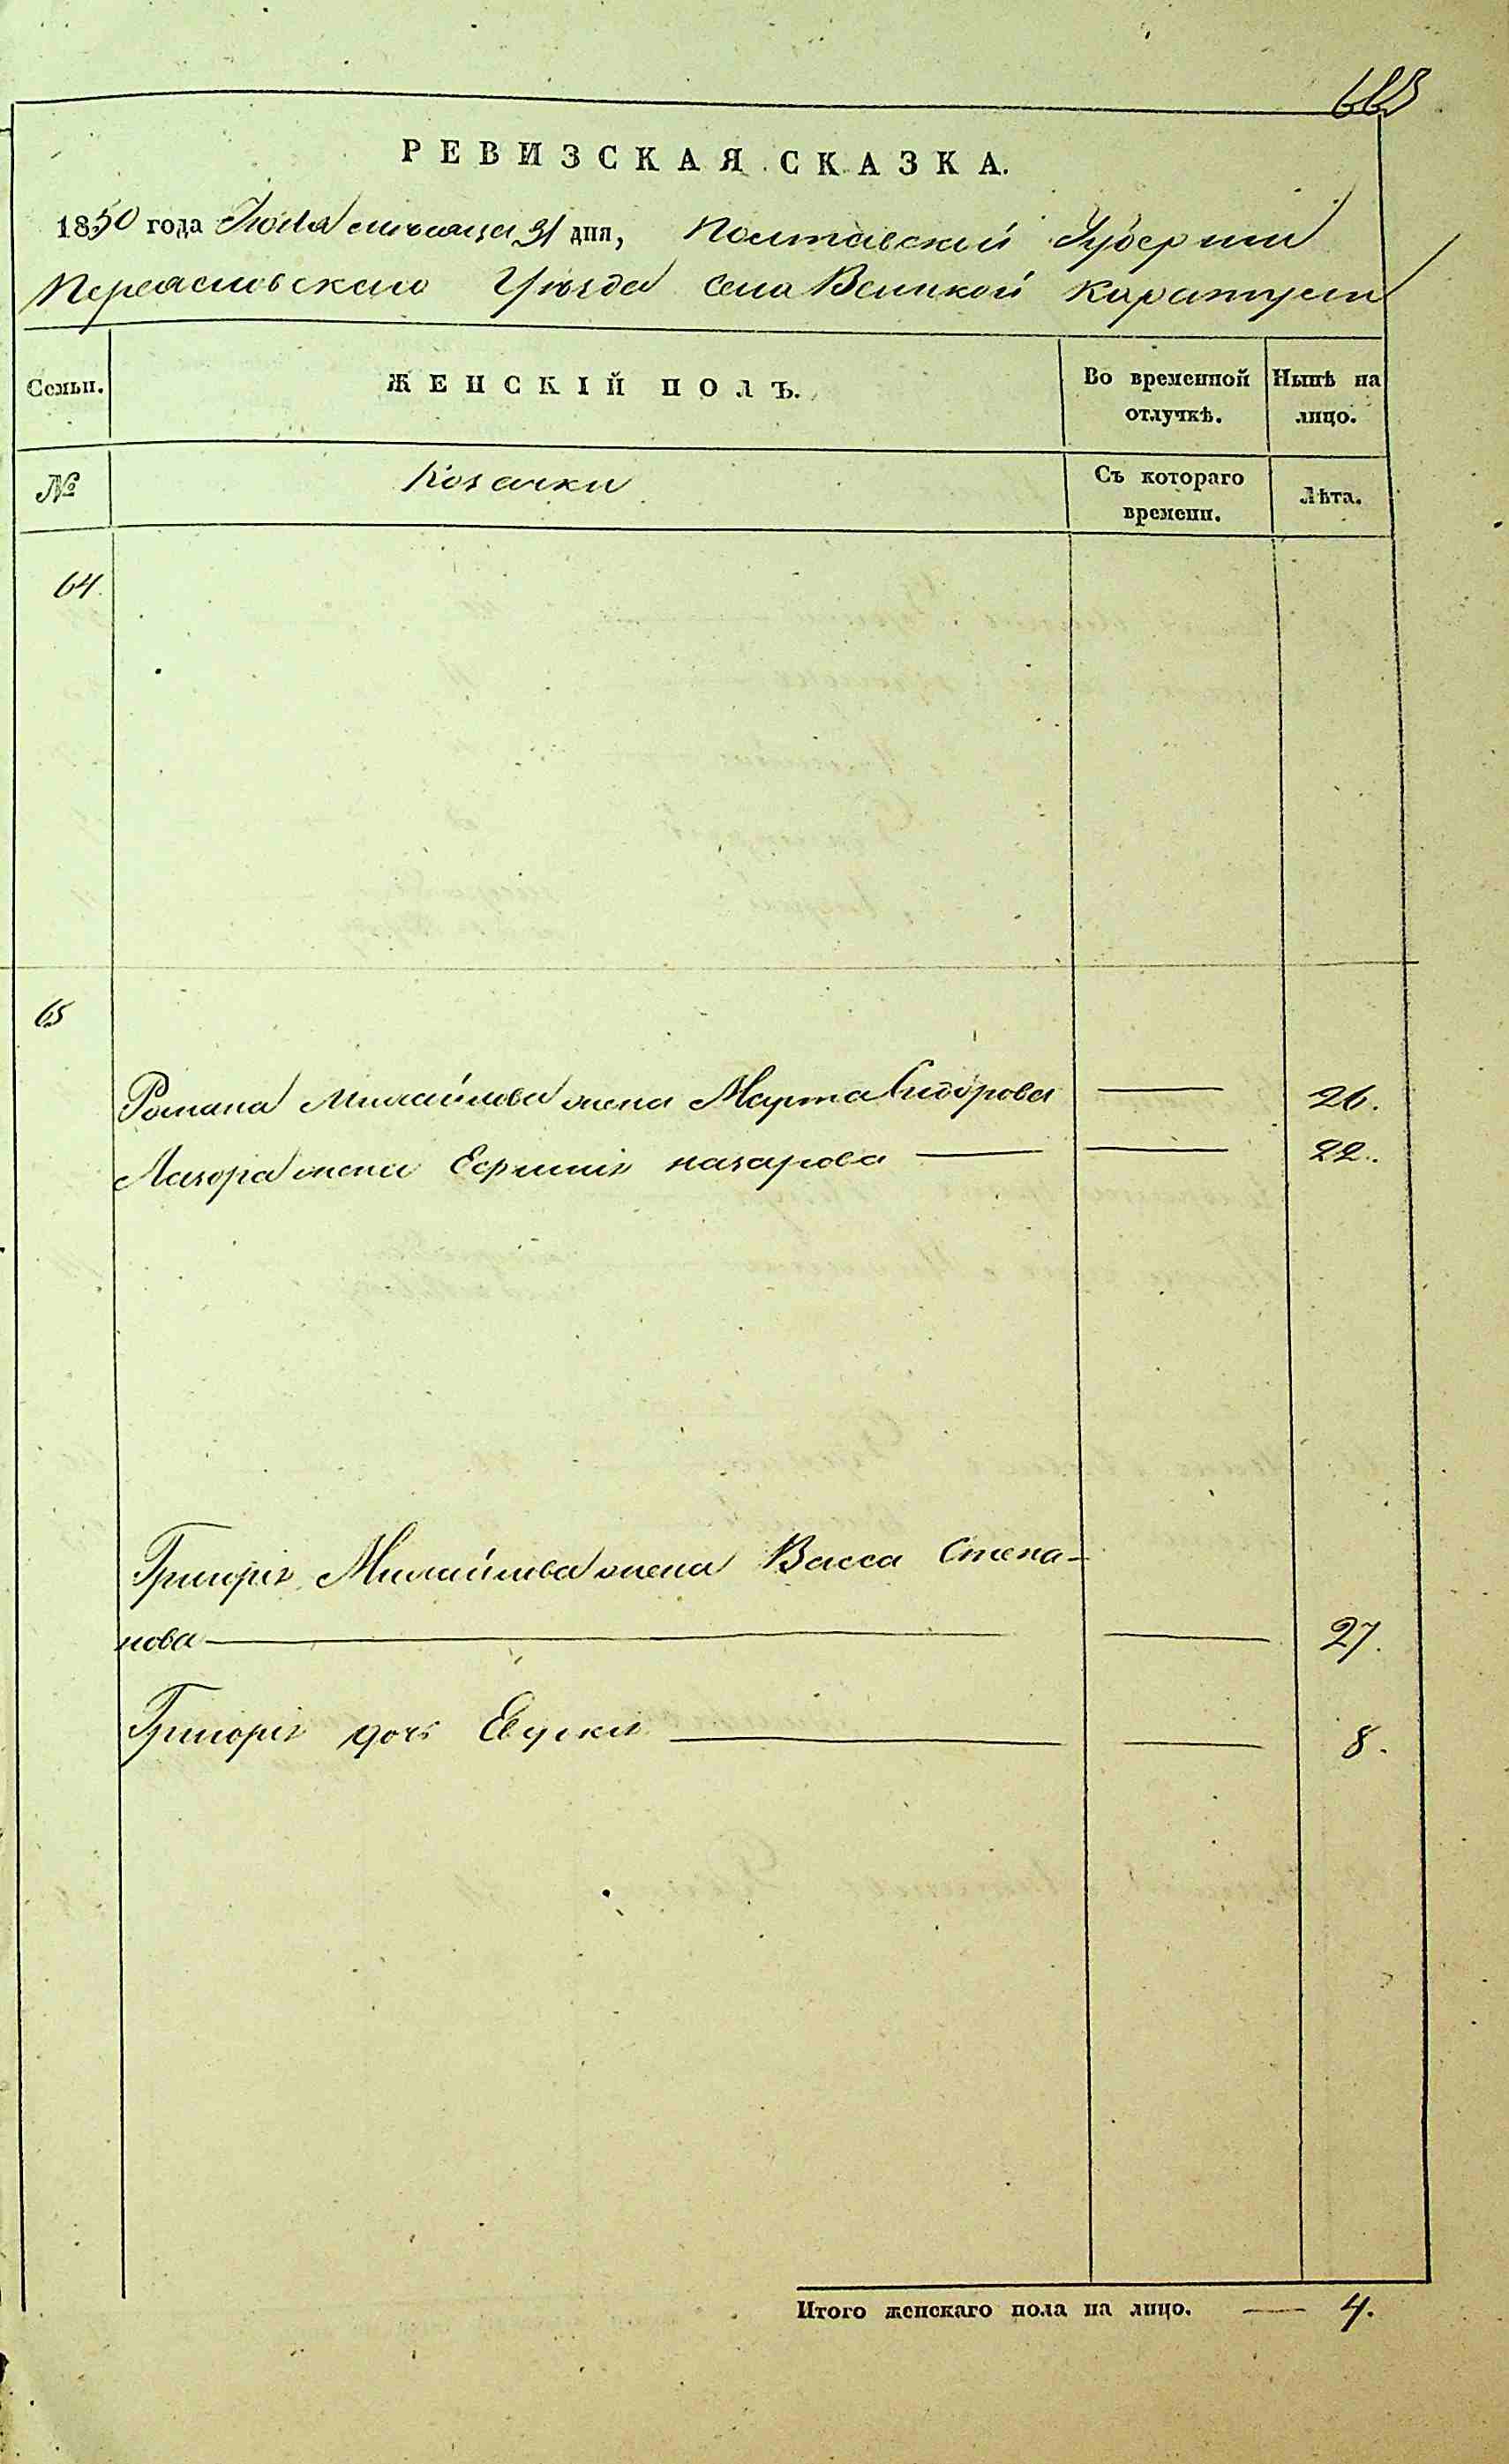 663
РЕВИЗСКАЯ СКАЗКА.
1850 года Июля месяца 31 дня, Полтавской Губернии
Переясловского Уѣзда села Великой Каратули
Семьи. ЖЕНСКІЙ ПОЛЪ. Во временной отлучкѣ. Нынѣ на лицо.
№ Козачки Съ котораго времени. Лѣта.
64.
65
Романа Михайлова жена Марта Сидорова — 26.
Лазора жена Ефимія назарова — — 22.
Григорія Михайлова жена Васса Степа-
нова — — 27.
Григорія дочь — — 8.
Итого женскаго пола на лицо. — 4.